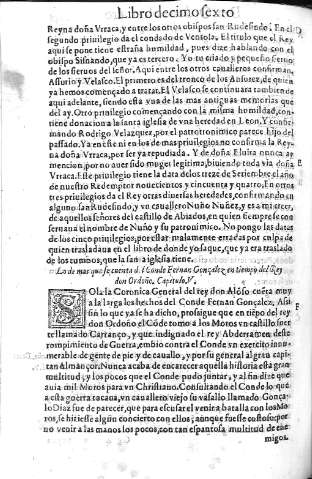 Libro decimo sexto
Reyna doña Vrraca, y entre los otros obispos san Rudesindo. En el
segundo priuilegio da el condado de Ventosa. El titulo que el Rey
aqui se pone tiene estraña humildad, pues dize hablando con el
obispo Sisnando, que ya es tercero. Yo tu criado y pequeño sieruo
de los sieruos del señor. Aqui entre los otros caualleros confirman,
Assurio y Velasco. El primero es del tronco de los Ansurez, de quien
ya hemos començado a tratar. El Velasco se continuara tambien de
aqui adelante, siendo esta vna de las mas antiguas memorias que
del ay. Otro priuilegio començando con la misma humildad, con-
tiene donacion a la santa iglesia de vna heredad en Leon. Y confir-
mando Rodrigo Velazquez, por el patronimico parece hijo del
passado. Ya en este ni en los de mas priuilegios no confirma la Rey-
na doña Vrraca, por ser ya repudiada. Y de doña Eluira nunca ay
mencion, por no auer sido muger legitima, biuiendo toda via doña
Vrraca. Este priuilegio tiene la data de los treze de Setiembre el año
de nuestro Redemptor nouecientos y cincuenta y quatro. En otros
tres priuilegios da el Rey otras diuersas heredades, confirmando en
alguno san Rudesindo, y vn cauallero Nuño Nuñez, y era
de aquellos señores del castillo de Abiados, en quien siempre se con-
serua el nombre de Nuño y su patronimico. No pongo las datas
de los cinco priuilegios, por estar malamente erradas por culpa de
quien trasladaua en el libro de donde yo saque, que ya era traslado
de los tumbos, que la santa iglesia tiene.
Lo de mas que se cuenta del Conde Fernan Gonçalez, en tiempo del Rey
don Ordoño. Capitulo. V.
SOla la Coronica General del rey don Alōso cueta muy
a la larga los hechos del Conde Fernan Gonçalez, Assi
sin lo que ya se ha dicho, prosigue que en tiēpo del rey
don Ordoño el Cōde tomo a los Moros vn castillo fuer
te llamado Carranço, y que indignado el rey Abderramen deste
rompimiento de Guerra, embio contra el Conde vn exercito innu-
merable de gente de pie y de cauallo, y por su general al gran capi-
tan Almançor. Nunca acaba de encarecer aquella historia esta gran
multitud, y los pocos que el Conde pudo juntar, y al fin dize que
auia mil Moros para vn Christiano. Consultando el Conde lo que
a esta guerra tocaua, vn cauallero viejo su vasallo llamado Gonça-
lo Diaz fue de parecer, que para escusar el venir a batalla con los Mo-
ros, se hiziesse algun concierto con ellos; aunque fuesse costoso: por
no venir a las manos los pocos, con tan espantosa multitud de ene
migos.